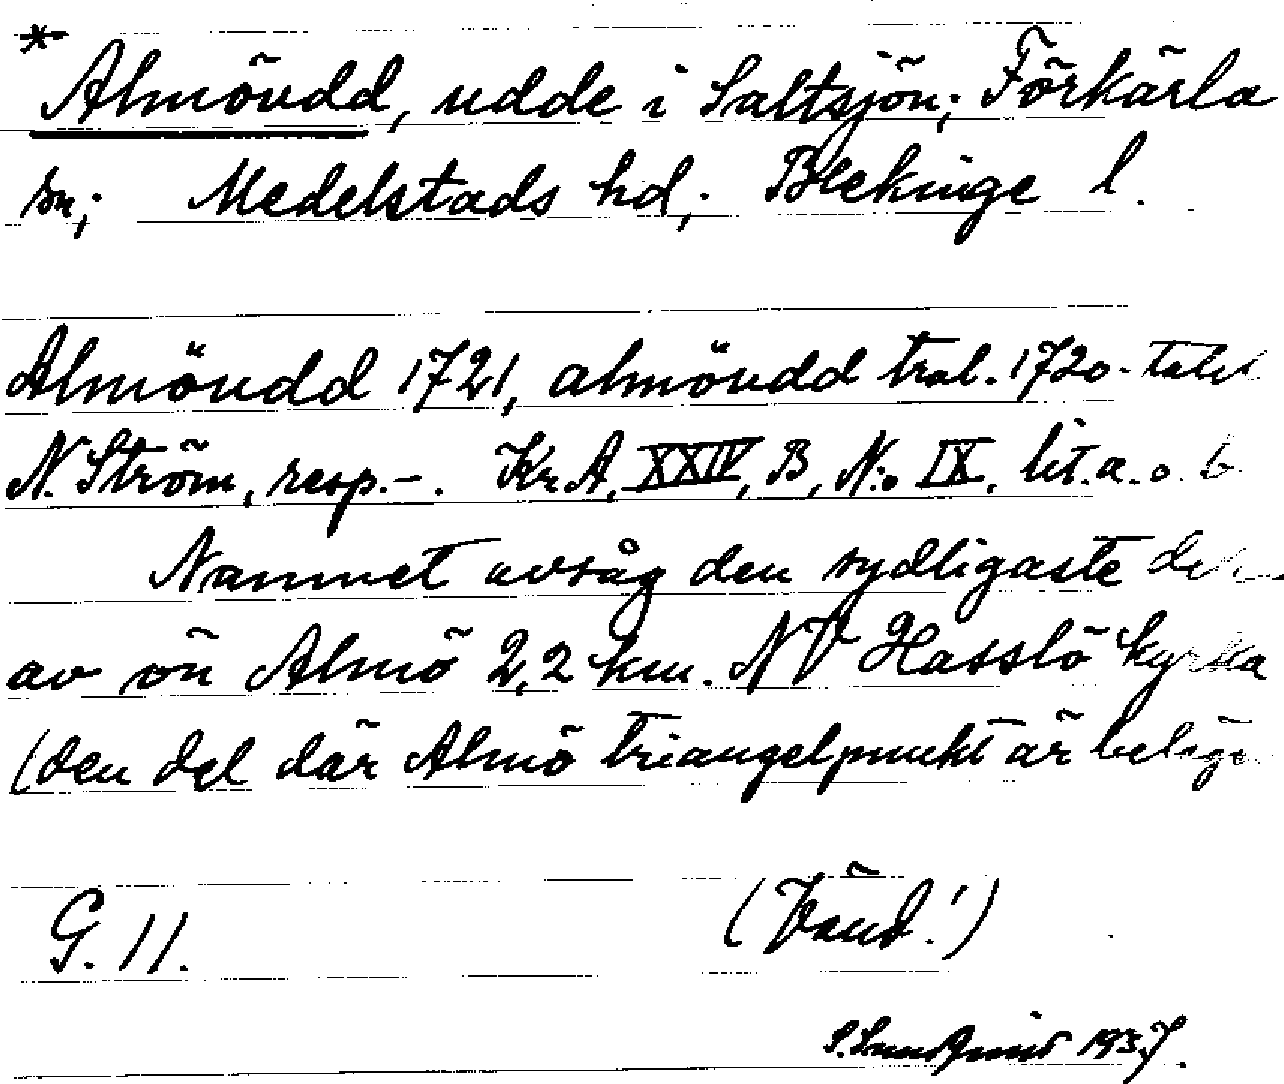 * Almöudd, udde i Saltsjön; Förkärla
sn; Medelstads hd; Blekinge l.
Almöudd 1721, almöudd trol. 1720-talet
N. Ström, resp. –. Kr. A. XXIV, B, N:o IX. lit. a. o. b.
Namnet avsåg den sydligaste delen
av ön Almö 2,2 km. NV Hasslö kyrka
(den del där Almö triangelpunkt är belägen
G. 11. (Vänd!)
1937.